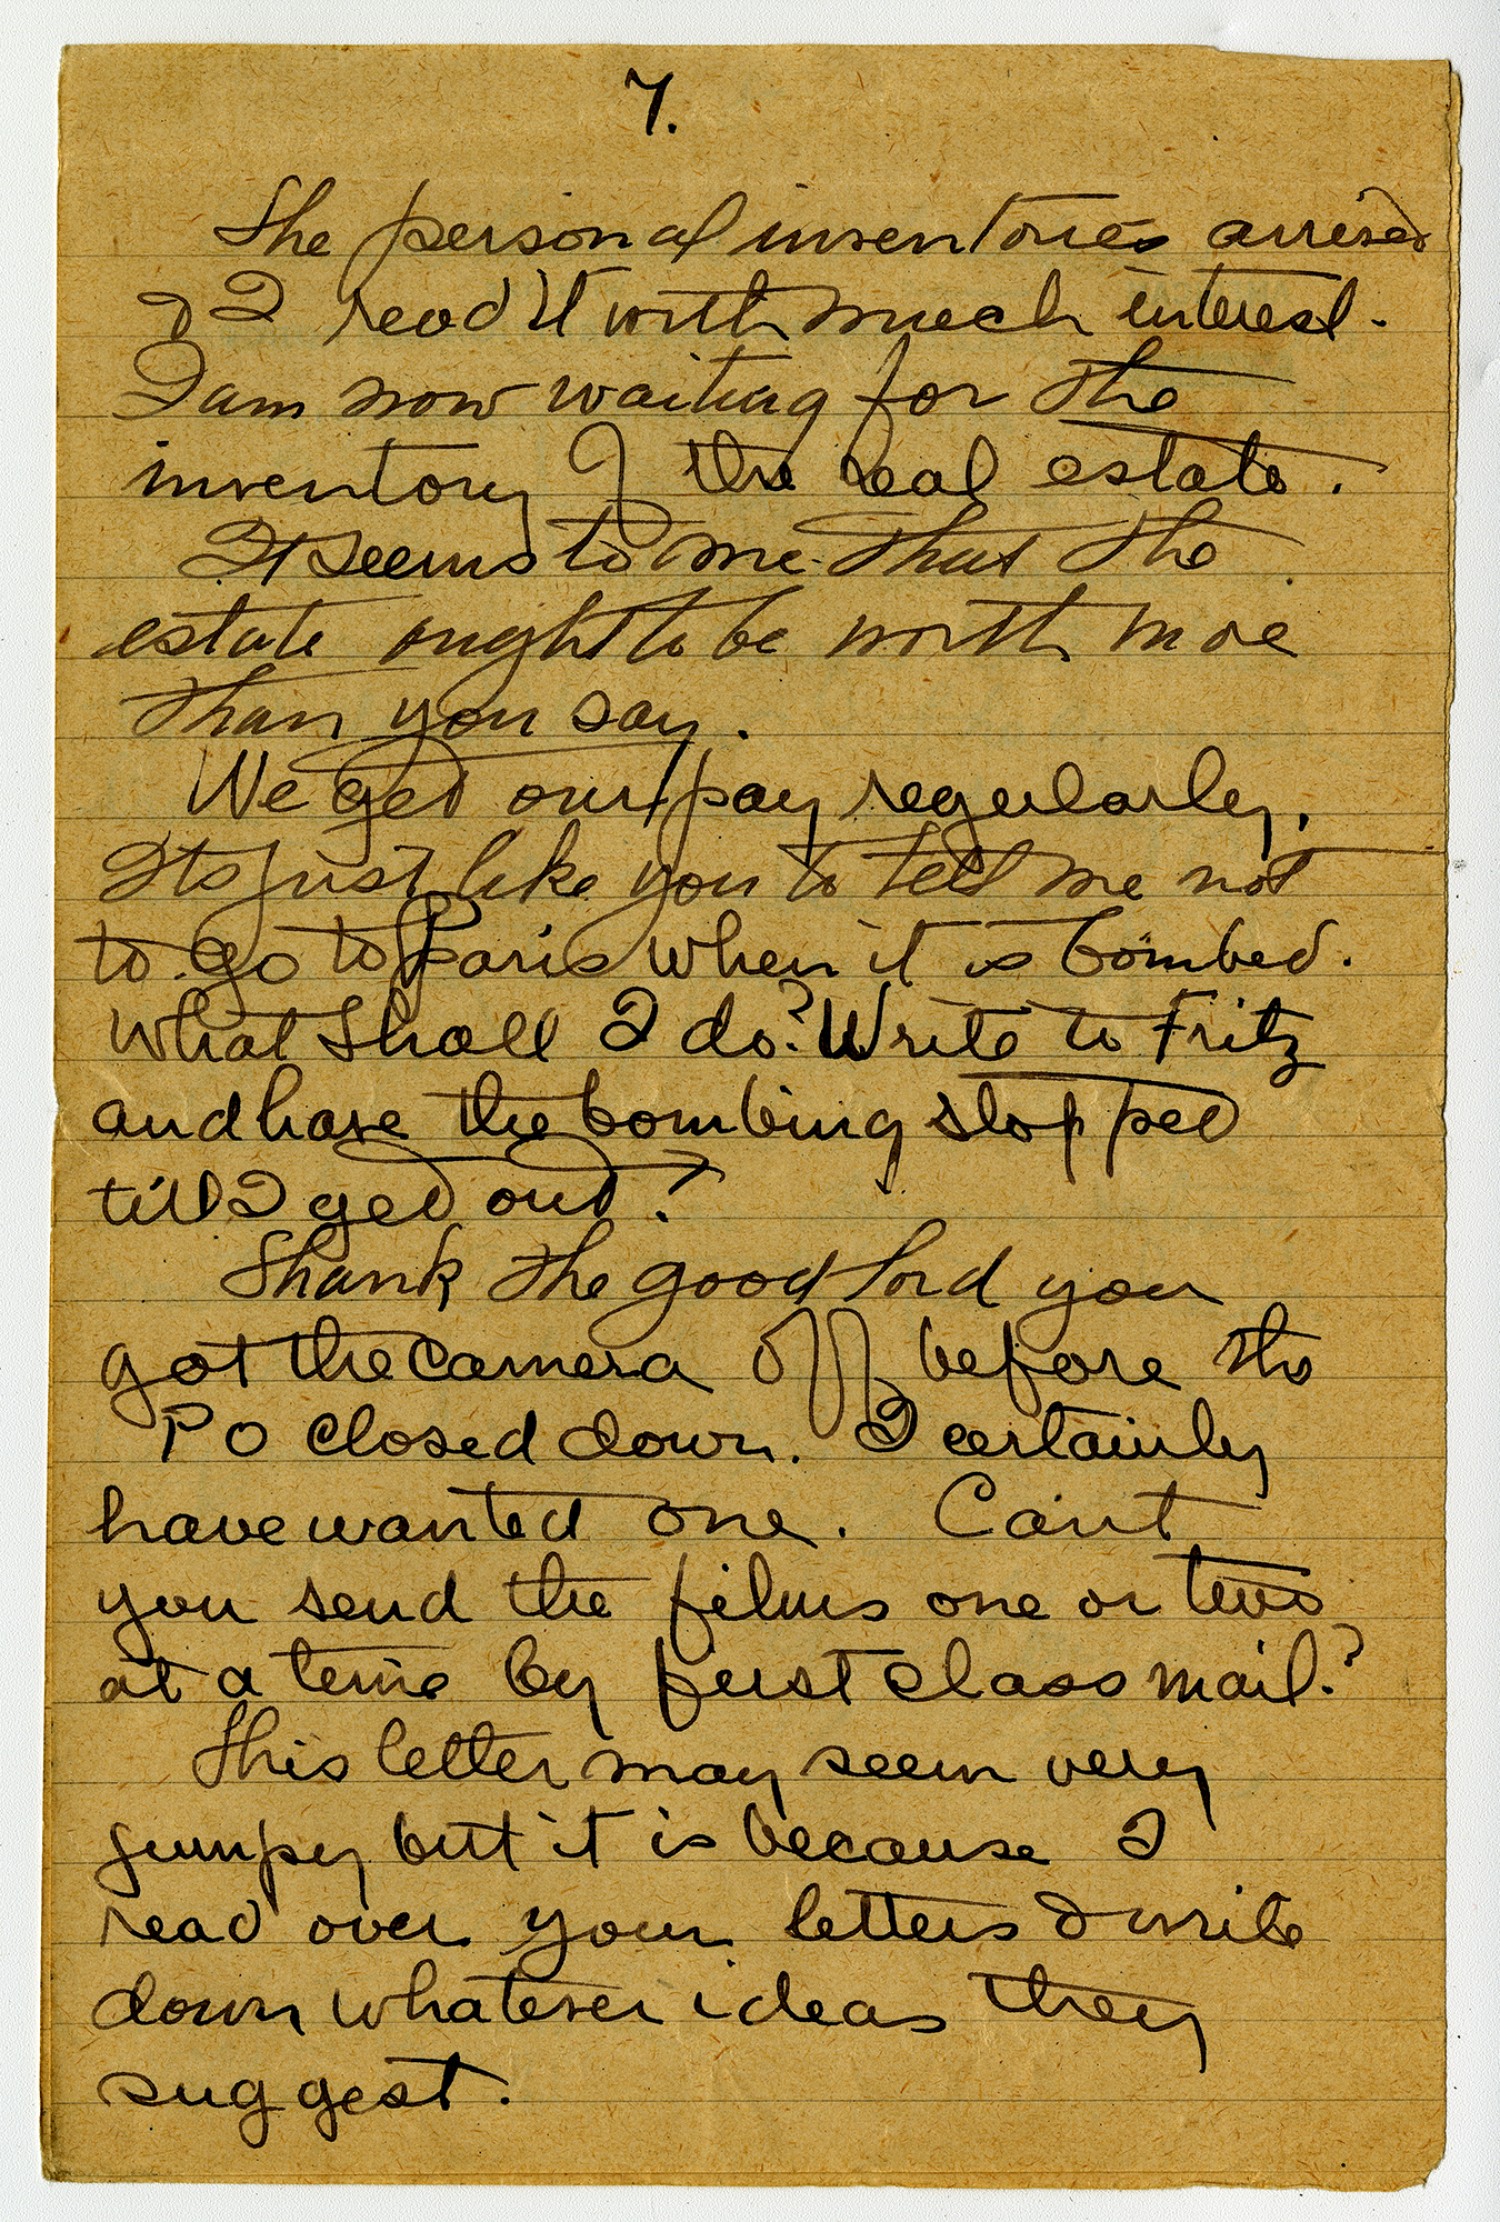 7.
The personal inventories arrived
& I read it with much interest.
I am now waiting for the
inventory of the real estate.
It seems to me that the
estate ought to be worth more
than you say.
We get our pay regularly.
Its just like you to tell me not
to go to Paris when it is bombed.
What shall I do? Write to Fritz
and have the bombing stopped
till I get out?
Thank the good lord you
got the camera off before the
PO closed down. I certainly
have wanted one. Can't
you send the films one or two
at a time by first class mail?
This letter may seem very
jumpy but it is because I
read over your letters & write
down whatever ideas they
suggest.